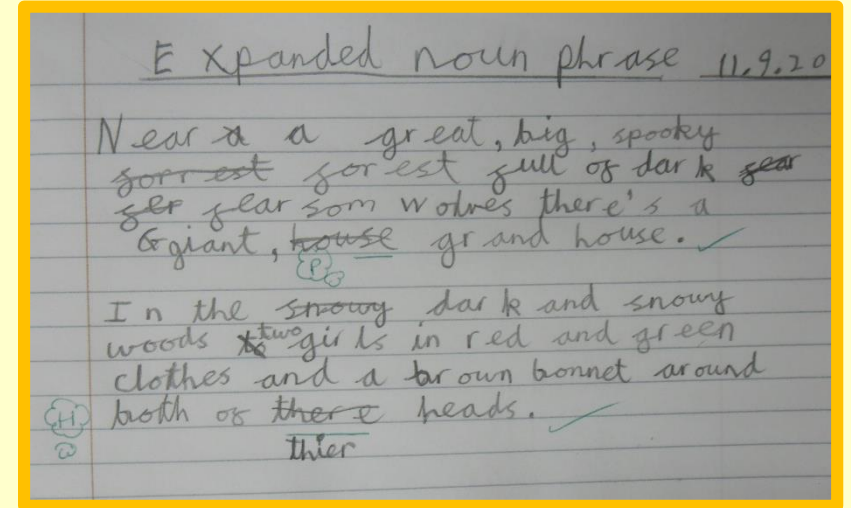 Expanded noun phrase 11.9.20
Near a a great, big, spooky
forrest forest full of dark fear
fer fearsom wolves there's a
Ggiant, house grand house. ✓
P
In the snowy dark and snowy
woods to two girls in red and green
clothes and a brown bonnet around
H both of there heads. ✓
thier